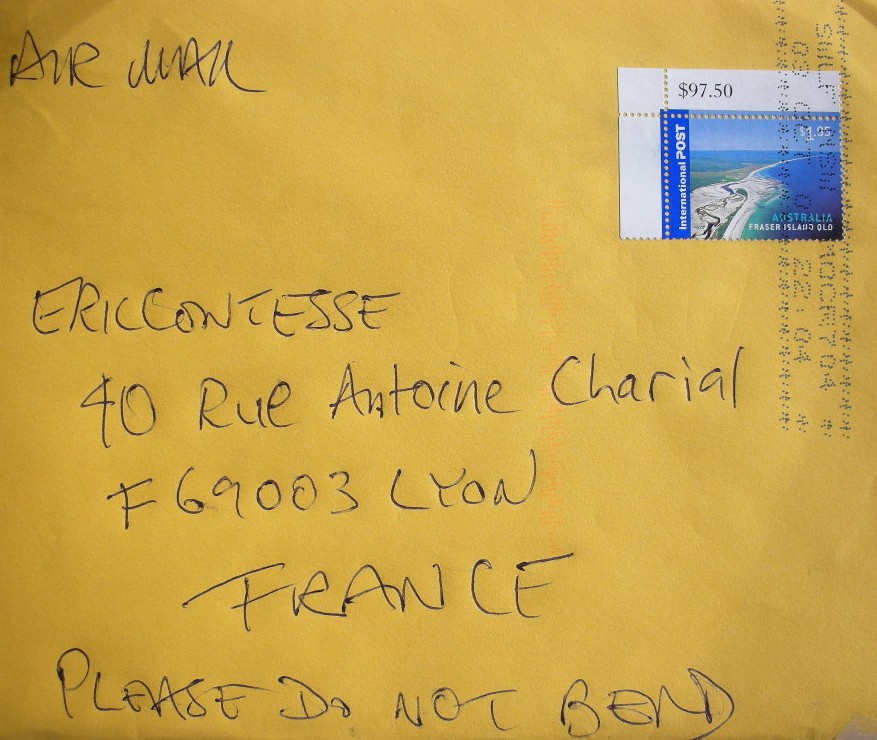 AIR MAIL
$97.50
$1.95
International POST
AUSTRALIA
FRASER ISLAND QLD
ERIC CONTESSE
40 Rue Antoine Charial
F 69003 LYON
FRANCE
PLEASE DO NOT BEND